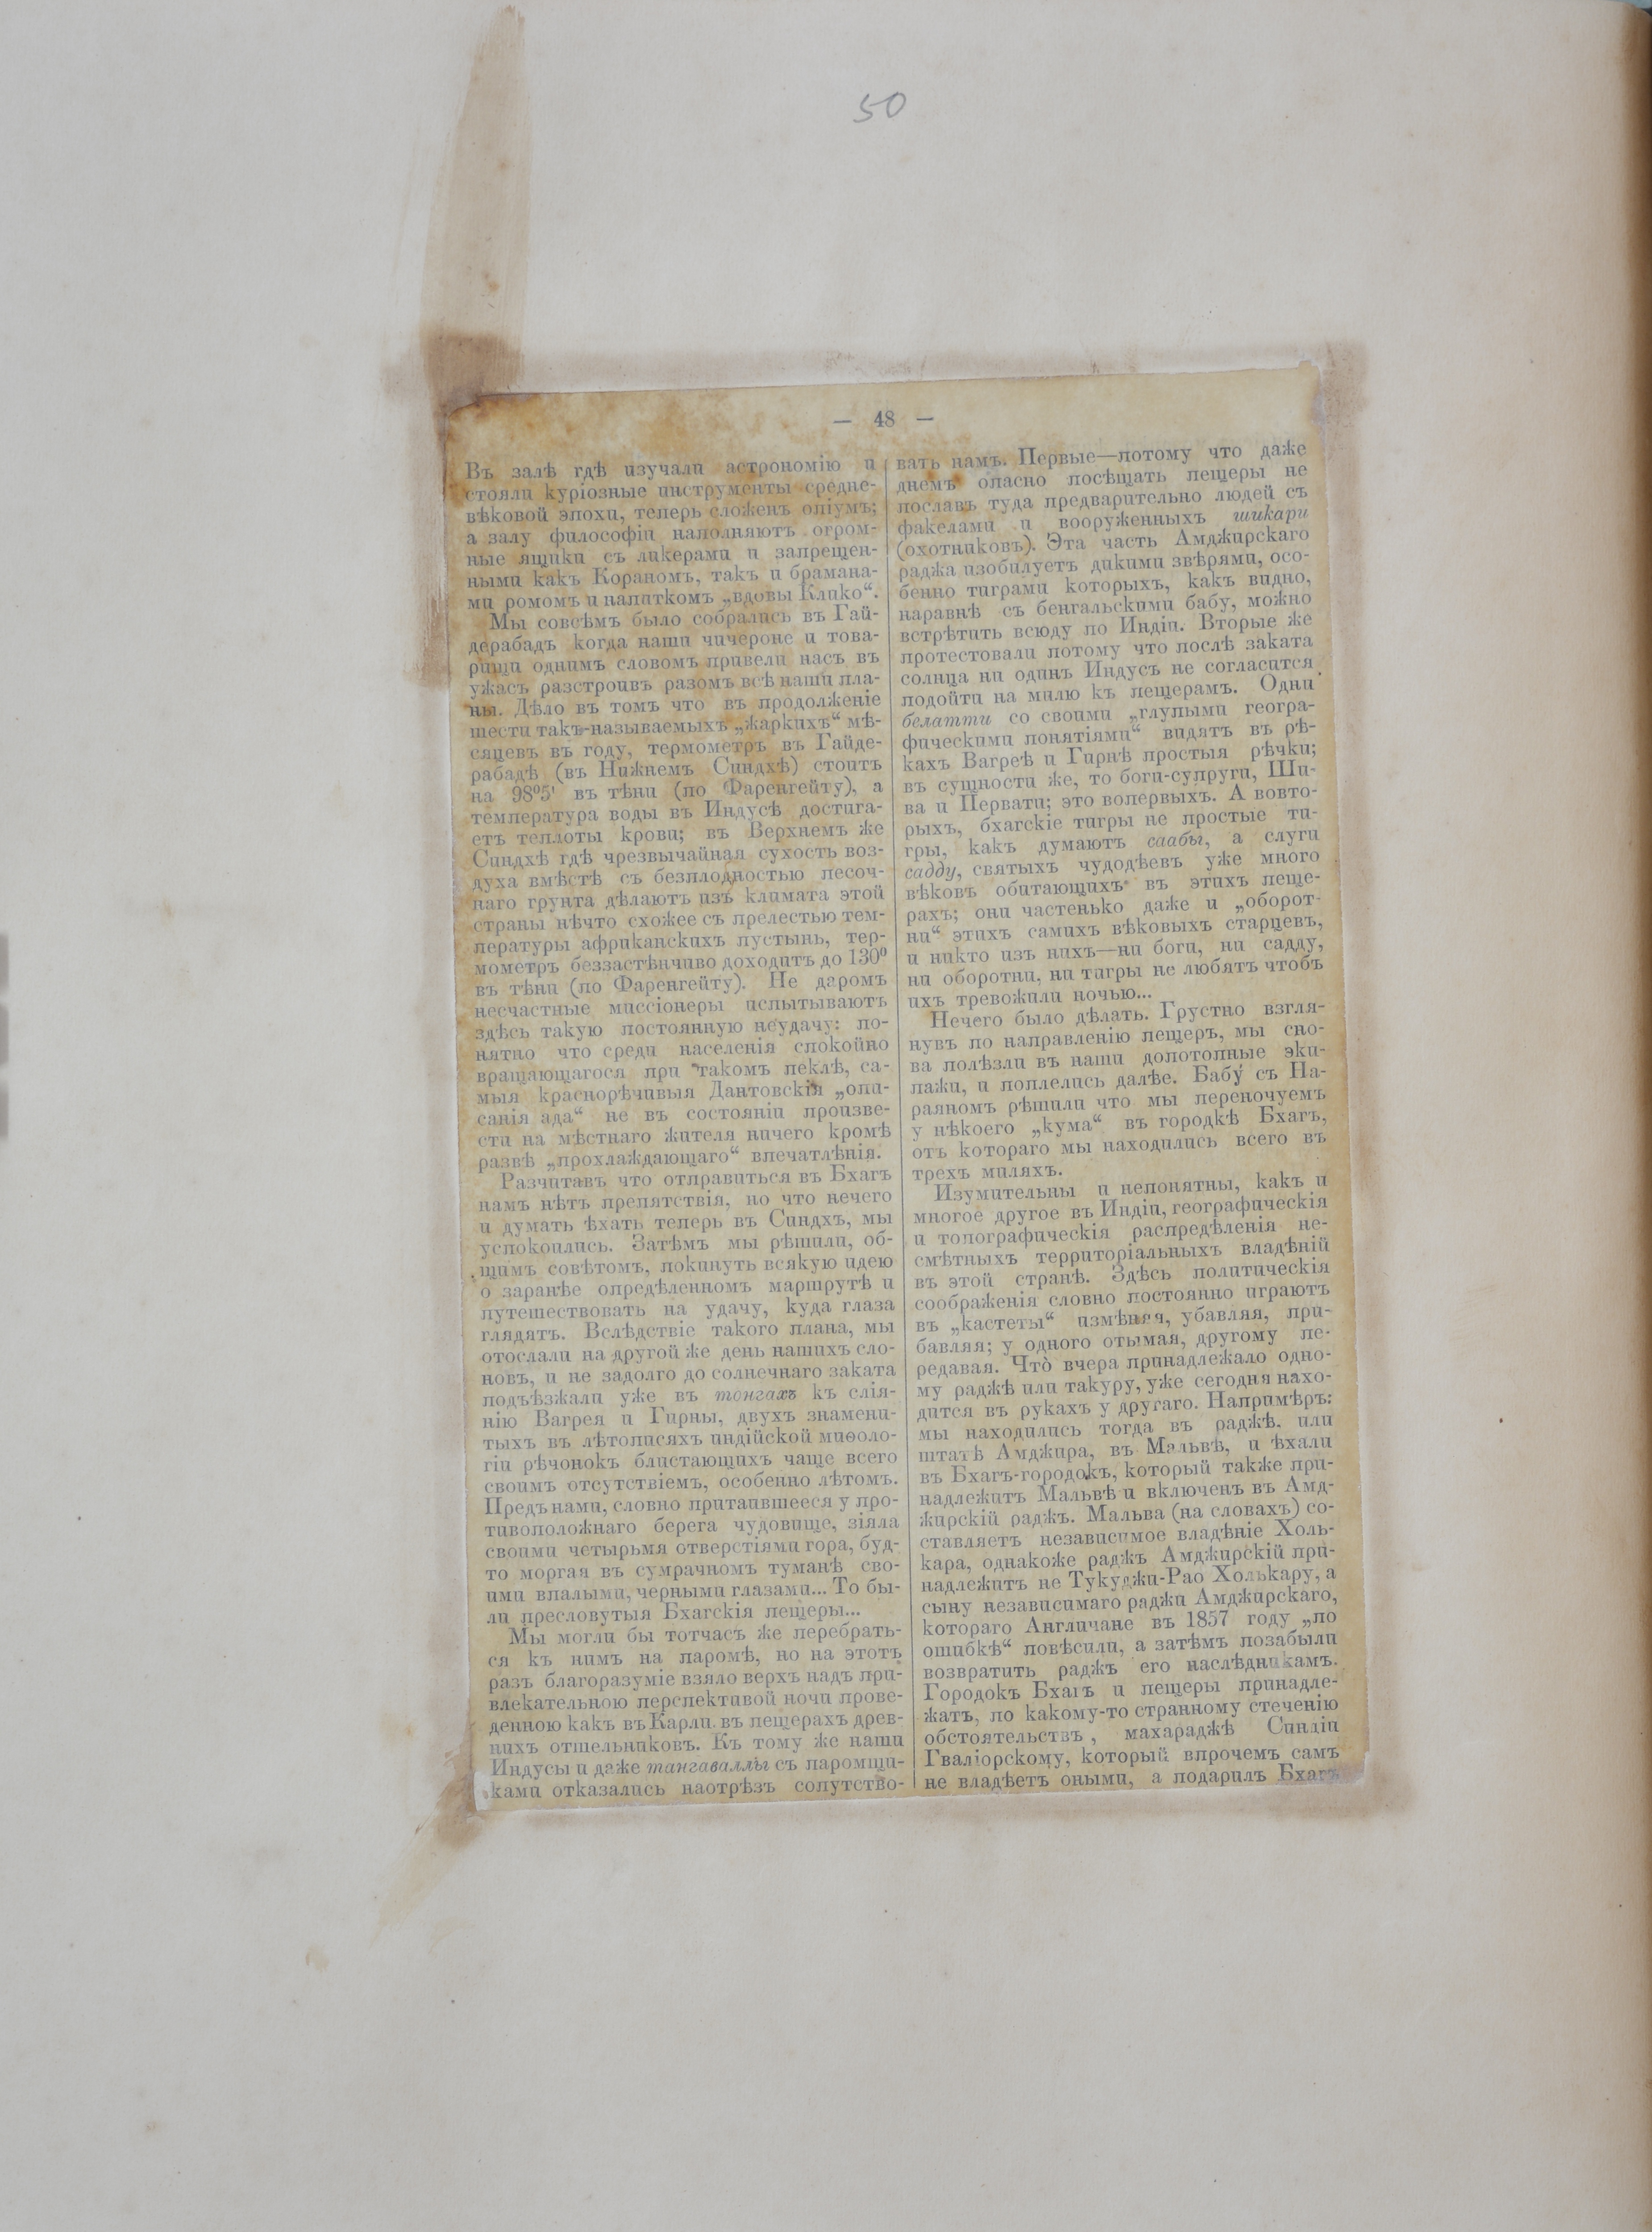 50
— 48 —
Въ залѣ гдѣ изучали астрономію и
стояли куріозные инструменты средне-
вѣковой эпохи, теперь сложенъ опіумъ;
а залу философіи наполняютъ огром-
ные ящики съ ликерами и запрещен-
ными какъ Кораномъ, такъ и брамана-
ми ромомъ и напиткомъ „вдовы Клико“.
Мы совсѣмъ было собрались въ Гай-
дерабадъ когда наши чичероне и това-
рищи однимъ словомъ привели насъ въ
ужасъ разстроивъ разомъ всѣ наши пла-
ны. Дѣло въ томъ что въ продолженіе
шести такъ-называемыхъ „жаркихъ“ мѣ-
сяцевъ въ году, термометръ въ Гайде-
рабадѣ (въ Нижнемъ Синдхѣ) стоитъ
на 98º5' въ тѣни (по Фаренгейту), а
температура воды въ Индусѣ достига-
етъ теплоты крови; въ Верхнемъ же
Синдхѣ гдѣ чрезвычайная сухость воз-
духа вмѣстѣ съ безплодностью песоч-
наго грунта дѣлаютъ изъ климата этой
страны нѣчто схожее съ прелестью тем-
пературы африканскихъ пустынь, тер-
мометръ беззастѣнчиво доходитъ до 130º
въ тѣни (по Фаренгейту). Не даромъ
несчастные миссіонеры испытываютъ
здѣсь такую постоянную неудачу: по-
нятно что среди населенія спокойно
вращающагося при такомъ пеклѣ, са-
мыя краснорѣчивыя Дантовскія „опи-
санія ада“ не въ состояніи произве-
сти на мѣстнаго жителя ничего кромѣ
развѣ „прохлаждающаго“ впечатлѣнія.
Разчитавъ что отправиться въ Бхагъ
намъ нѣтъ препятствія, но что нечего
и думать ѣхать теперь въ Синдхъ, мы
успокоились. Затѣмъ мы рѣшили, об-
щимъ совѣтомъ, покинуть всякую идею
о заранѣе опредѣленномъ маршрутѣ и
путешествовать на удачу, куда глаза
глядятъ. Вслѣдствіе такого плана, мы
отослали на другой же день нашихъ сло-
новъ, и не задолго до солнечнаго заката
подъѣзжали уже въ тонгахъ къ слія-
нію Вагрея и Гирны, двухъ знамени-
тыхъ въ лѣтописяхъ индійской миѳоло-
гіи рѣчонокъ блистающихъ чаще всего
своимъ отсутствіемъ, особенно лѣтомъ.
Предъ нами, словно притаившееся у про-
тивоположнаго берега чудовище, зіяла
своими четырьмя отверстіями гора, буд-
то моргая въ сумрачномъ туманѣ сво-
ими впалыми, черными глазами... То бы-
ли пресловутыя Бхагскія пещеры...
Мы могли бы тотчасъ же перебрать-
ся къ нимъ на паромѣ, но на этотъ
разъ благоразуміе взяло верхъ надъ при-
влекательною перспективой ночи прове-
денною какъ въ Карли въ пещерахъ древ-
нихъ отшельниковъ. Къ тому же наши
Индусы и даже тангаваллы съ паромщи-
ками отказались наотрѣзъ сопутство-
вать намъ. Первые—потому что даже
днемъ опасно посѣщать пещеры не
пославъ туда предварительно людей съ
факелами и вооруженныхъ шикари
(охотниковъ). Эта часть Амджирскаго
раджа изобилуетъ дикими звѣрями, осо-
бенно тиграми которыхъ, какъ видно,
наравнѣ съ бенгальскими бабу, можно
встрѣтить всюду по Индіи. Вторые же
протестовали потому что послѣ заката
солнца ни одинъ Индусъ не согласится
подойти на милю къ пещерамъ. Одни
белатти со своими „глупыми геогра-
фическими понятіями“ видятъ въ рѣ-
кахъ Вагреѣ и Гирнѣ простыя рѣчки;
въ сущности же, то боги-супруги, Ши-
ва и Первати; это вопервыхъ. А вовто-
рыхъ, бхагскіе тигры не простые ти-
гры, какъ думаютъ саабы, а слуги
садду, святыхъ чудодѣевъ уже много
вѣковъ обитающихъ въ этихъ пеще-
рахъ; они частенько даже и „оборот-
ни“ этихъ самихъ вѣковыхъ старцевъ,
и никто изъ нихъ—ни боги, ни садду,
ни оборотни, ни тигры не любятъ чтобъ
ихъ тревожили ночью...
Нечего было дѣлать. Грустно взгля-
нувъ по направленію пещеръ, мы сно-
ва полѣзли въ наши допотопные эки-
пажи, и поплелись далѣе. Бабу съ На-
раяномъ рѣшили что мы переночуемъ
у нѣкоего „кума“ въ городкѣ Бхагъ,
отъ котораго мы находились всего въ
трехъ миляхъ.
Изумительны и непонятны, какъ и
многое другое въ Индіи, географическія
и топографическія распредѣленія не-
смѣтныхъ территоріальныхъ владѣній
въ этой странѣ. Здѣсь политическія
соображенія словно постоянно играютъ
въ „кастеты“ измѣняя, убавляя, при-
бавляя; у одного отымая, другому пе-
редавая. Что̀ вчера принадлежало одно-
му раджѣ или такуру, уже сегодня нахо-
дится въ рукахъ у другаго. Напримѣръ:
мы находились тогда въ раджѣ, или
штатѣ Амджира, въ Мальвѣ, и ѣхали
въ Бхагъ-городокъ, который также при-
надлежитъ Мальвѣ и включенъ въ Амд-
жирскій раджъ. Мальва (на словахъ) со-
ставляетъ независимое владѣніе Холь-
кара, однакоже раджъ Амджирскій при-
надлежитъ не Тукуджи-Рао Холькару, а
сыну независимаго раджи Амджирскаго,
котораго Англичане въ 1857 году „по
ошибкѣ“ повѣсили, а затѣмъ позабыли
возвратить раджъ его наслѣдникамъ.
Городокъ Бхагъ и пещеры принадле-
жатъ, по какому-то странному стеченію
обстоятельствъ, махараджѣ Синдіи
Гваліорскому, который впрочемъ самъ
не владѣетъ оными, а подарилъ Бхагъ